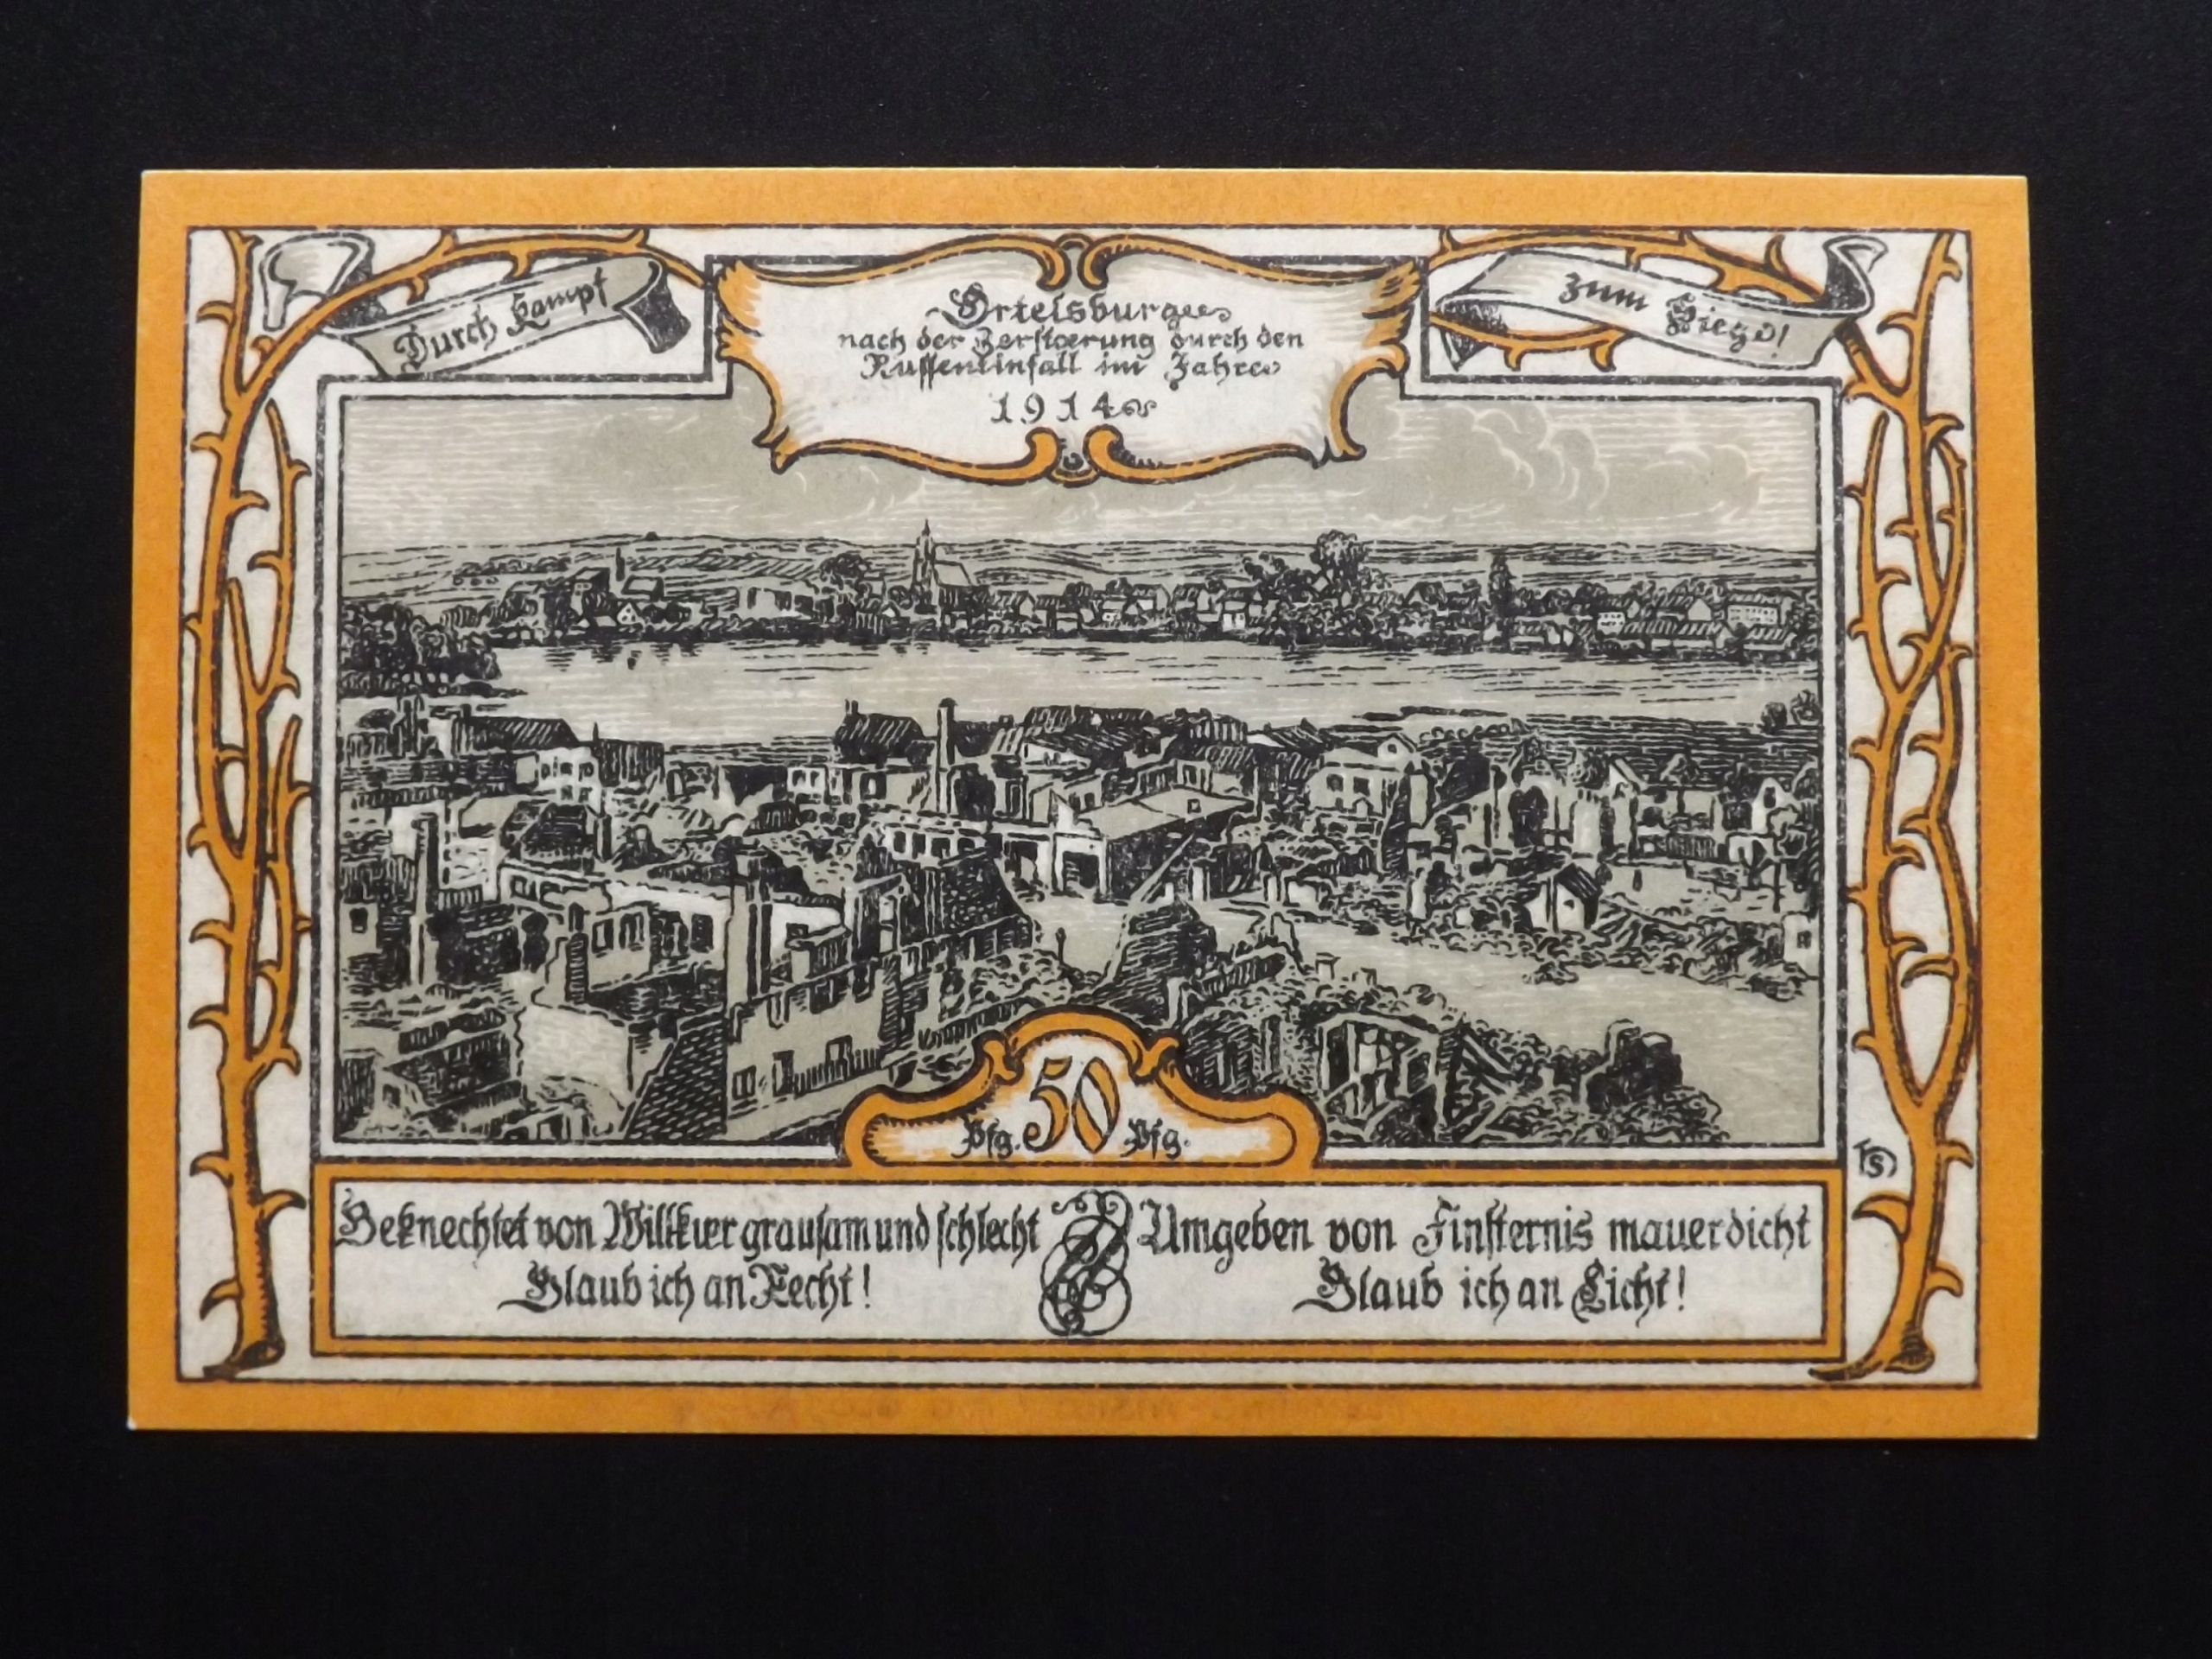 Durch Kampf
zum Siege!
Ortelsburg
nach der Zerstoerung durch den
Russeneinfall im Jahre
1914
Pfg. 50 Pfg.
Geknechtet von Willkuer grausam und schlecht
Glaub ich an Recht!
Umgeben von Finsternis mauerdicht
Glaub ich an Licht!